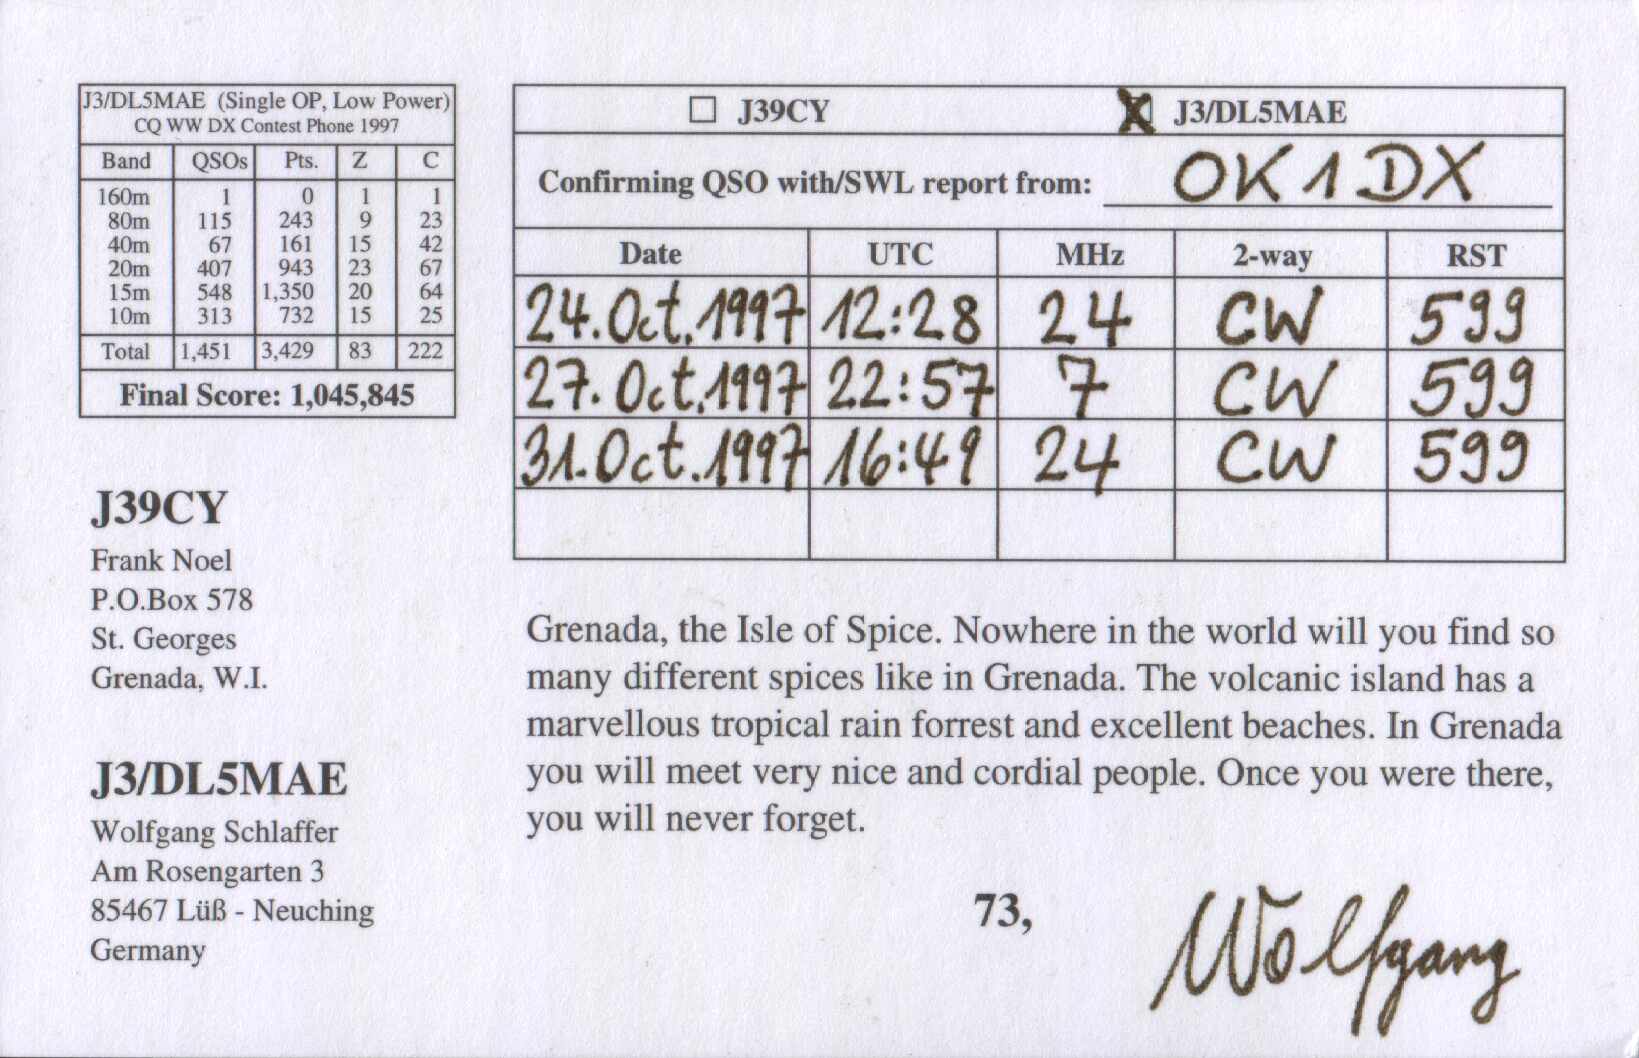 J3/DL5MAE (Single OP, Low Power)
CQ WW DX Contest Phone 1997
Band QSOs Pts. Z C
160m 1 0 1 1
80m 115 243 9 23
40m 67 161 15 42
20m 407 943 23 67
15m 548 1,350 20 64
10m 313 732 15 25
Total 1,451 3,429 83 222
Final Score: 1,045,845
J39CY
Frank Noel
P.O.Box 578
St. Georges
Grenada, W.I.
J3/DL5MAE
Wolfgang Schlaffer
Am Rosengarten 3
85467 Lüß - Neuching
Germany
☐ J39CY ☒ J3/DL5MAE
Confirming QSO with/SWL report from: OK1DX
Date UTC MHz 2-way RST
24. Oct. 1997 12:28 24 CW 599
27. Oct. 1997 22:57 7 CW 599
31. Oct. 1997 16:49 24 CW 599
Grenada, the Isle of Spice. Nowhere in the world will you find so
many different spices like in Grenada. The volcanic island has a
marvellous tropical rain forrest and excellent beaches. In Grenada
you will meet very nice and cordial people. Once you were there,
you will never forget.
73,
Wolfgang